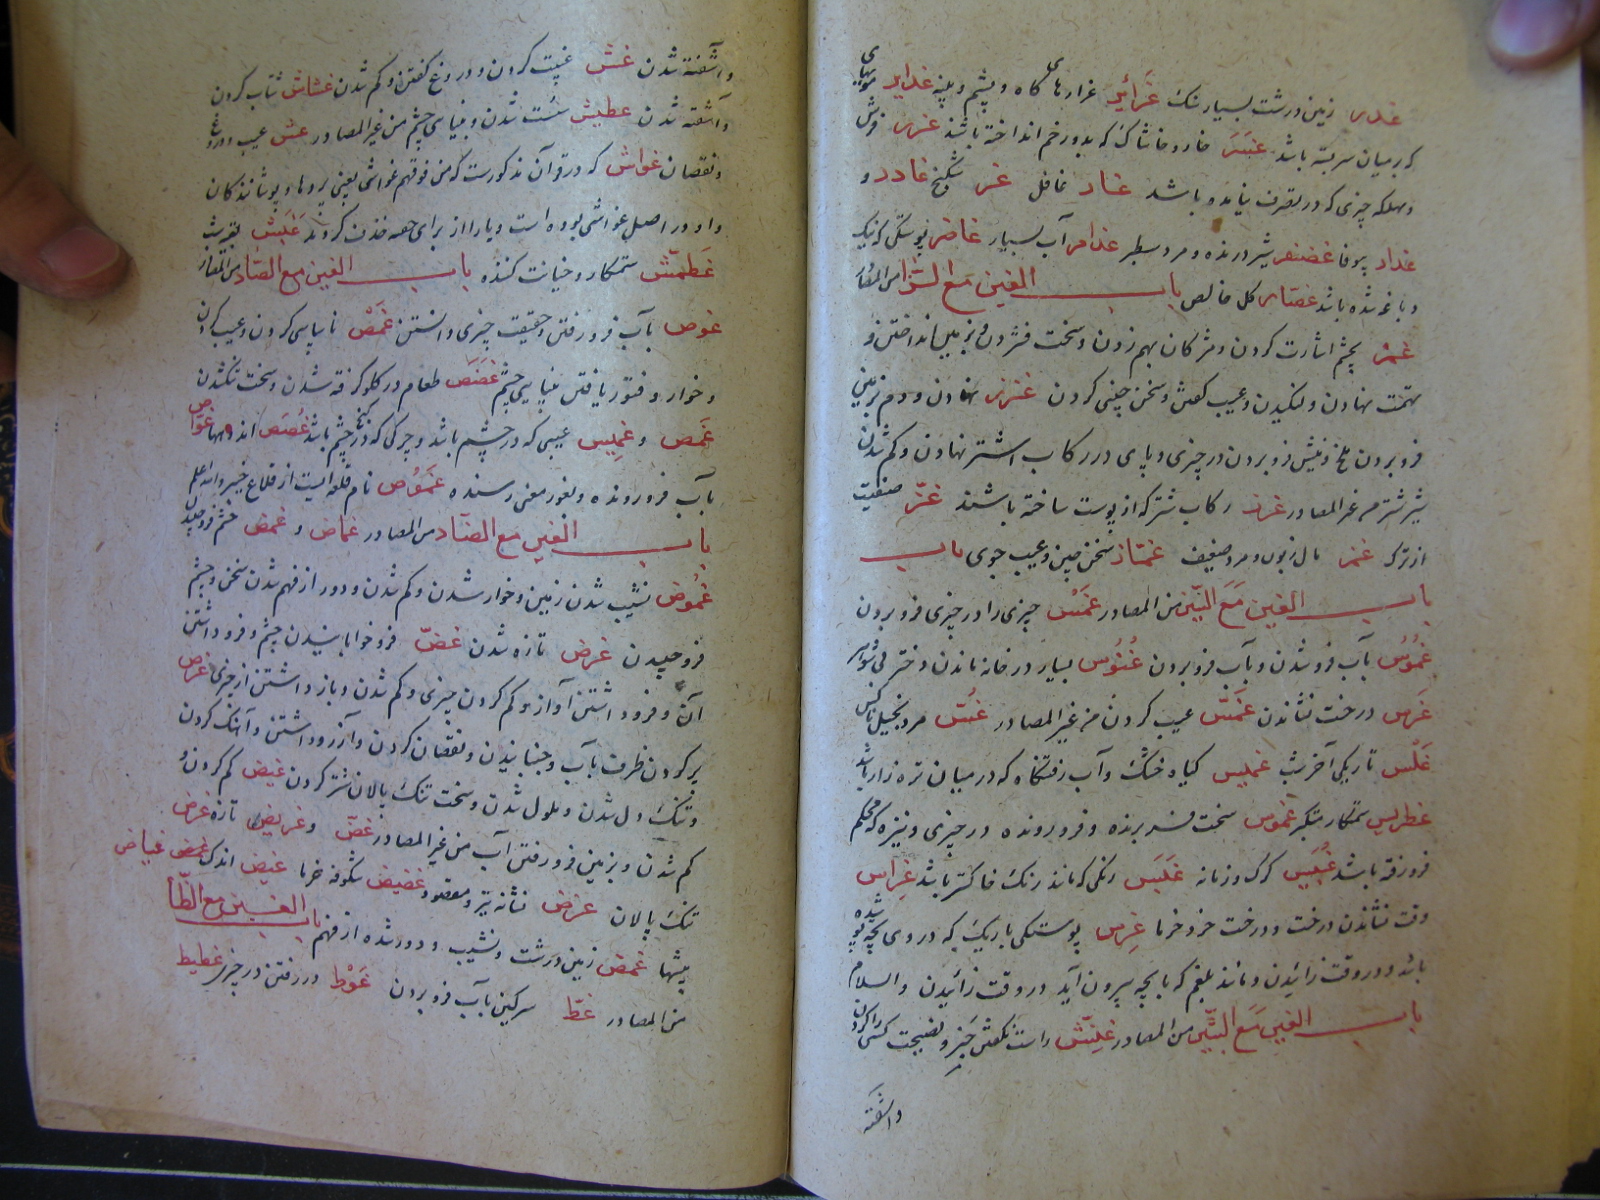 غدر زمین درشت بسیار سنک غرائر غرارهای کاه و پشم و پلیه غدایر مویهای
که بر میان سر بسته باشد غثر خار و خاشاک که بدور خم انداخته باشند غرر فروش
و مهلکه چیزی که در تصرف نیامده باشد غار غافل غر شکنج غادر و
غدار بیوفا غضنفر شیر درنده و مرد سطبر غدامر آب بسیار غاضر پوستکی که نیک
دباغه شده باشد غضار کل خالص باب الغین مع الزا من المصادر
غمز بچشم اشارت کردن و مژکان بهم زدن و سخت فشردن و بر زمین انداختن و
تهمت نهادن و لنکیدن و عیب کفتن و سخن چینی کردن غرز نهادن و دم بر زمین
فرو بردن ملخ و نیش فرو بردن در چیزی و پای در رکاب اشتر نهادن و کم شدن
شیر شتر من غیر المصادر غرز رکاب شتر که از پوست ساخته باشند غز صنفیست
از ترک غمز مال زبون و مرد ضعیف غماز سخن چین و عیب جوی باب
باب الغین مع السین من المصادر غمس چیزی را در چیزی فرو بردن
غموس بآب فرو شدن و بآب فرو بردن غنوس بسیار در خانه ماندن دختر بی شوهر
غرس درخت نشاندن غمس عیب کردن من غیر المصادر غس مرد بخیل ناکس
غلس تاریکی آخر شب غمیس کیاه خشک و آب رفتنکاه که در میان تره زار باشد
غطریس ستمکار متکبر غموس سخت فرو برنده و فرو رونده در چیزی و نیزه که محکم
فرو رفته باشد غبیس کرک و زمانه غلبس رنکی که مانند رنک خاکستر باشد غراس
وقت نشاندن درخت و درخت خرد خرما غرس پوستکی باریک که در روی بچه پوشیده
باشد در وقت زائیدن و مانند بلغم که با بچه بیرون آید در وقت زائیدن والسلام
باب الغین مع الشین من المصادر غش راست نکفتن خبر و نصیحت کسی را کردن
و آشفته
و آشفته شدن غش غیبت کردن و دروغ کفتن و کم شدن غشاش شتاب کردن
و آشفته شدن عطیش سست شدن و بینایی چشم من غیر المصادر غش عیب و دروغ
و نقصان غواش که در قرآن مذکورست که من فوقهم غواش یعنی پردها و پوشانندکان
و او در اصل غواشی بوده است و یا را از برای جمعه حذف کردند غبش بقیه شب
غطمش ستمکار و خیانت کننده باب الغین مع الصاد من المصادر
غوص بآب فرو رفتن و حقیقت چیزی دانستن غمص ناسپاسی کردن و عیب کردن
و خوار و فتور یافتن بینایی چشم غصص طعام در کلو کرفته شدن و سخت تنک شدن
غمص و غمیص عیبی که در چشم باشد و چرکی که در کنج چشم باشد غصص اندوهها غواص
بآب فرو رونده و بغور معنی رسنده غموص نام قلعه ایست از قلاع خیبر والله اعلم
باب الغین مع الضاد من المصادر غماض و غمض چشم فرو خوابیدن
غموض نشیب شدن زمین و خوار شدن و کم شدن و دور از فهم شدن سخن و چشم
فرو خیدن غرض تازه شدن غض فرو خوابانیدن چشم و فرو داشتن
آن و فرو داشتن آواز و کم کردن چیزی و کم شدن و باز داشتن از چیزی غرض
پر کردن ظرف بآب و جنبانیدن و نقصان کردن و آرزو داشتن و آهنک کردن
و تنک دل شدن و ملول شدن و سخت تنک پالان شتر کردن غیض کم کردن و
کم شدن و بزمین فرو رفتن آب من غیر المصادر غض و غریض تازه غرض
تنک پالان غرض نشانه تیر و مقصود غضیض شکوفه خرما غیض اندک غمض غیاض
بیشها غمض زمین درشت و نشیب و دور شده از فهم باب الغین مع الطا
من المصادر غط سرکین بآب فرو بردن غوط در رفتن در چیزی غطیط